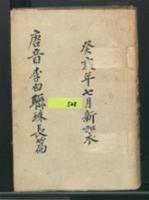 癸亥年七月新加衣
唐音李白聯珠長篇